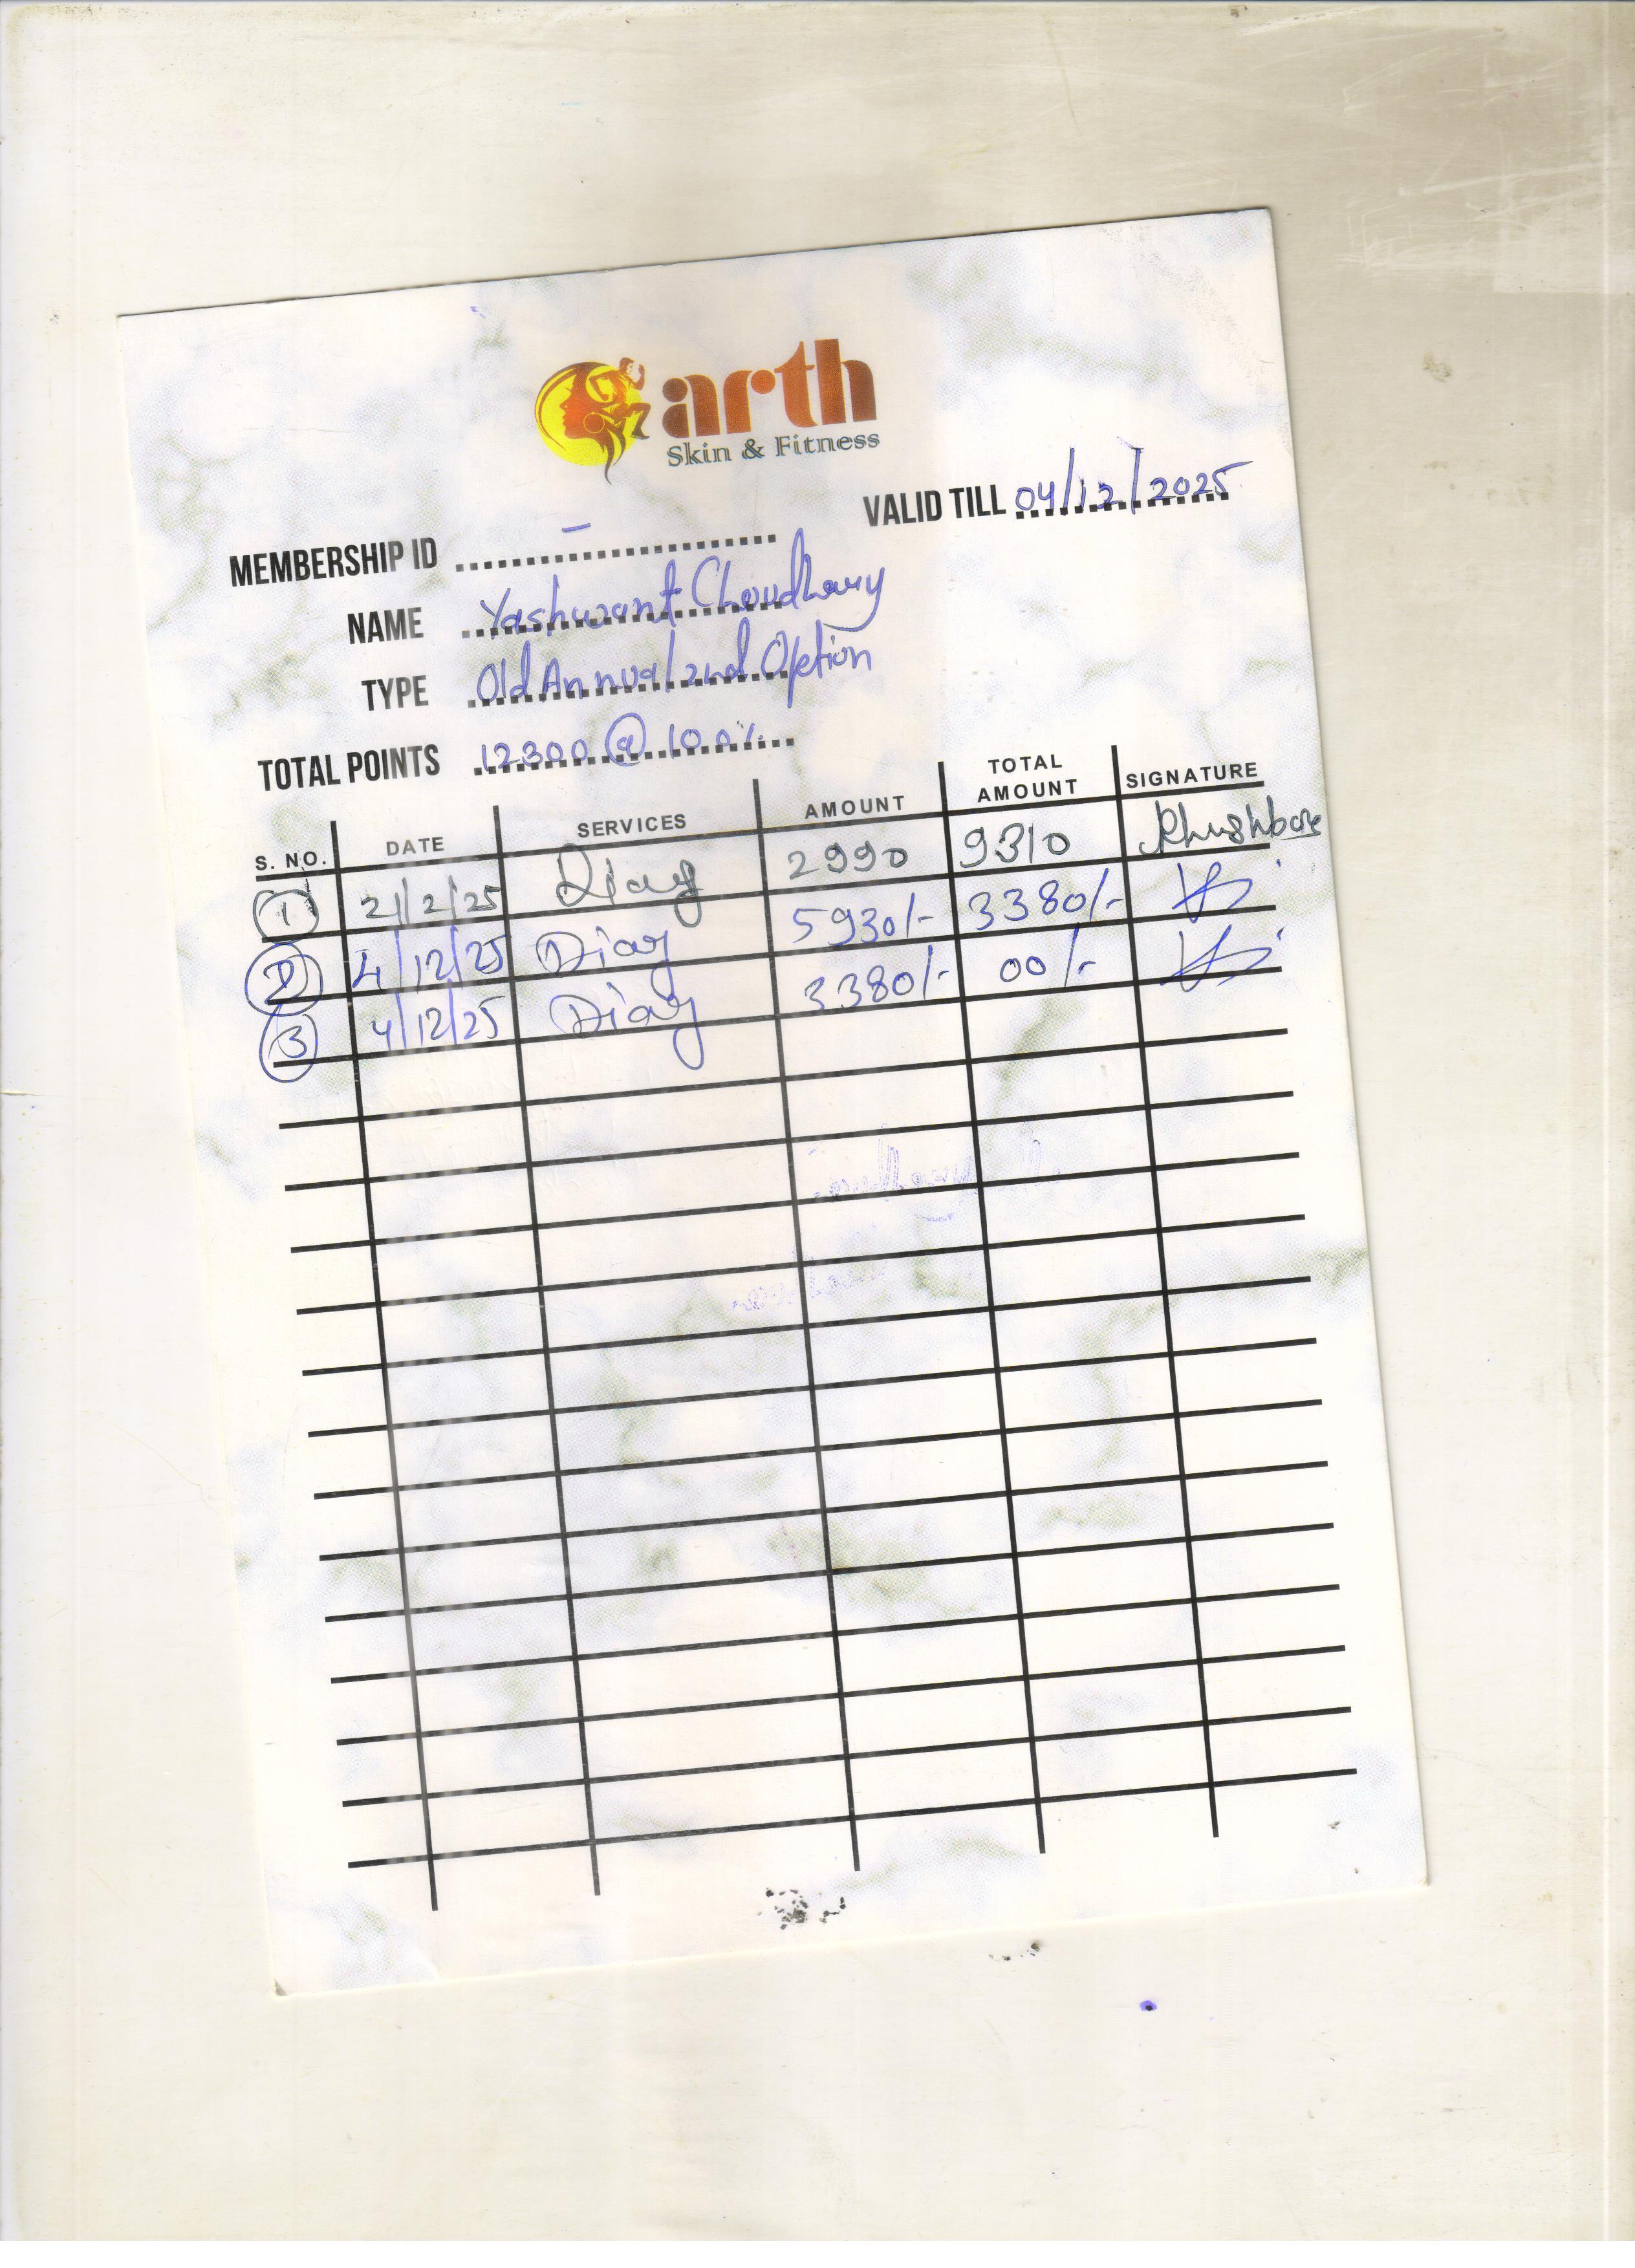 arth
Skin & Fitness
VALID TILL 04/12/2025
MEMBERSHIP ID –
NAME Yashwant Choudhary
TYPE Old Annual 2nd Option
TOTAL POINTS 12300 @ 100%
S. NO. DATE SERVICES AMOUNT TOTAL AMOUNT SIGNATURE
1 21/2/25 Diay 2990 9310 Khushboo
2 4/12/25 Diay 5930/- 3380/-
3 4/12/25 Diay 3380/- 00/-